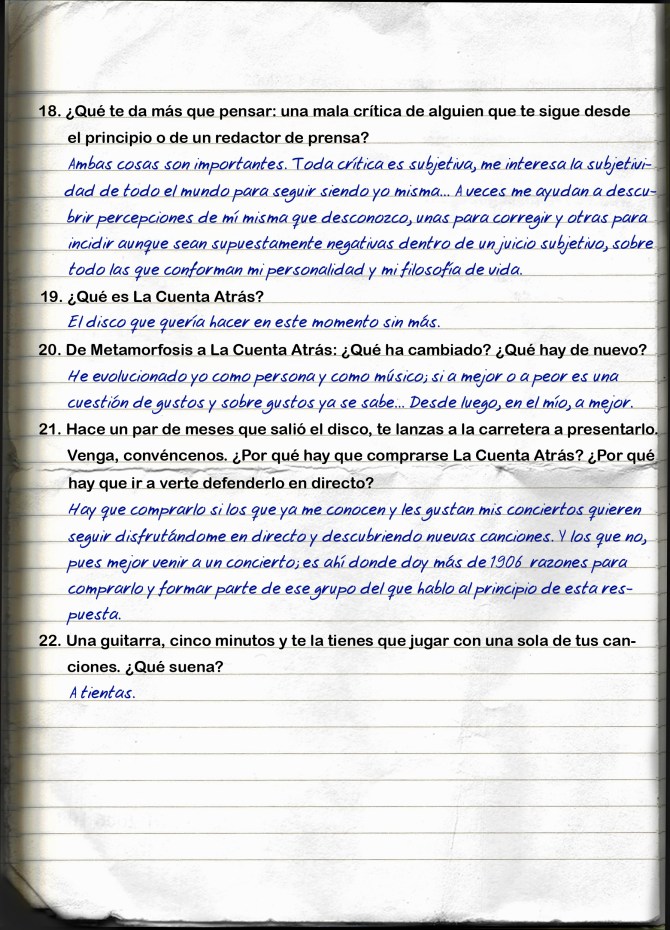 18. ¿Qué te da más que pensar: una mala crítica de alguien que te sigue desde
el principio o de un redactor de prensa?
Ambas cosas son importantes. Toda crítica es subjetiva, me interesa la subjetivi-
dad de todo el mundo para seguir siendo yo misma... A veces me ayudan a descu-
brir percepciones de mí misma que desconozco, unas para corregir y otras para
incidir aunque sean supuestamente negativas dentro de un juicio subjetivo, sobre
todo las que conforman mi personalidad y mi filosofía de vida.
19. ¿Qué es La Cuenta Atrás?
El disco que quería hacer en este momento sin más.
20. De Metamorfosis a La Cuenta Atrás: ¿Qué ha cambiado? ¿Qué hay de nuevo?
He evolucionado yo como persona y como músico; si a mejor o a peor es una
cuestión de gustos y sobre gustos ya se sabe... Desde luego, en el mío, a mejor.
21. Hace un par de meses que salió el disco, te lanzas a la carretera a presentarlo.
Venga, convéncenos. ¿Por qué hay que comprarse La Cuenta Atrás? ¿Por qué
hay que ir a verte defenderlo en directo?
Hay que comprarlo si los que ya me conocen y les gustan mis conciertos quieren
seguir disfrutándome en directo y descubriendo nuevas canciones. Y los que no,
pues mejor venir a un concierto; es ahí donde doy más de 1906 razones para
comprarlo y formar parte de ese grupo del que hablo al principio de esta res-
puesta.
22. Una guitarra, cinco minutos y te la tienes que jugar con una sola de tus can-
ciones. ¿Qué suena?
A tientas.